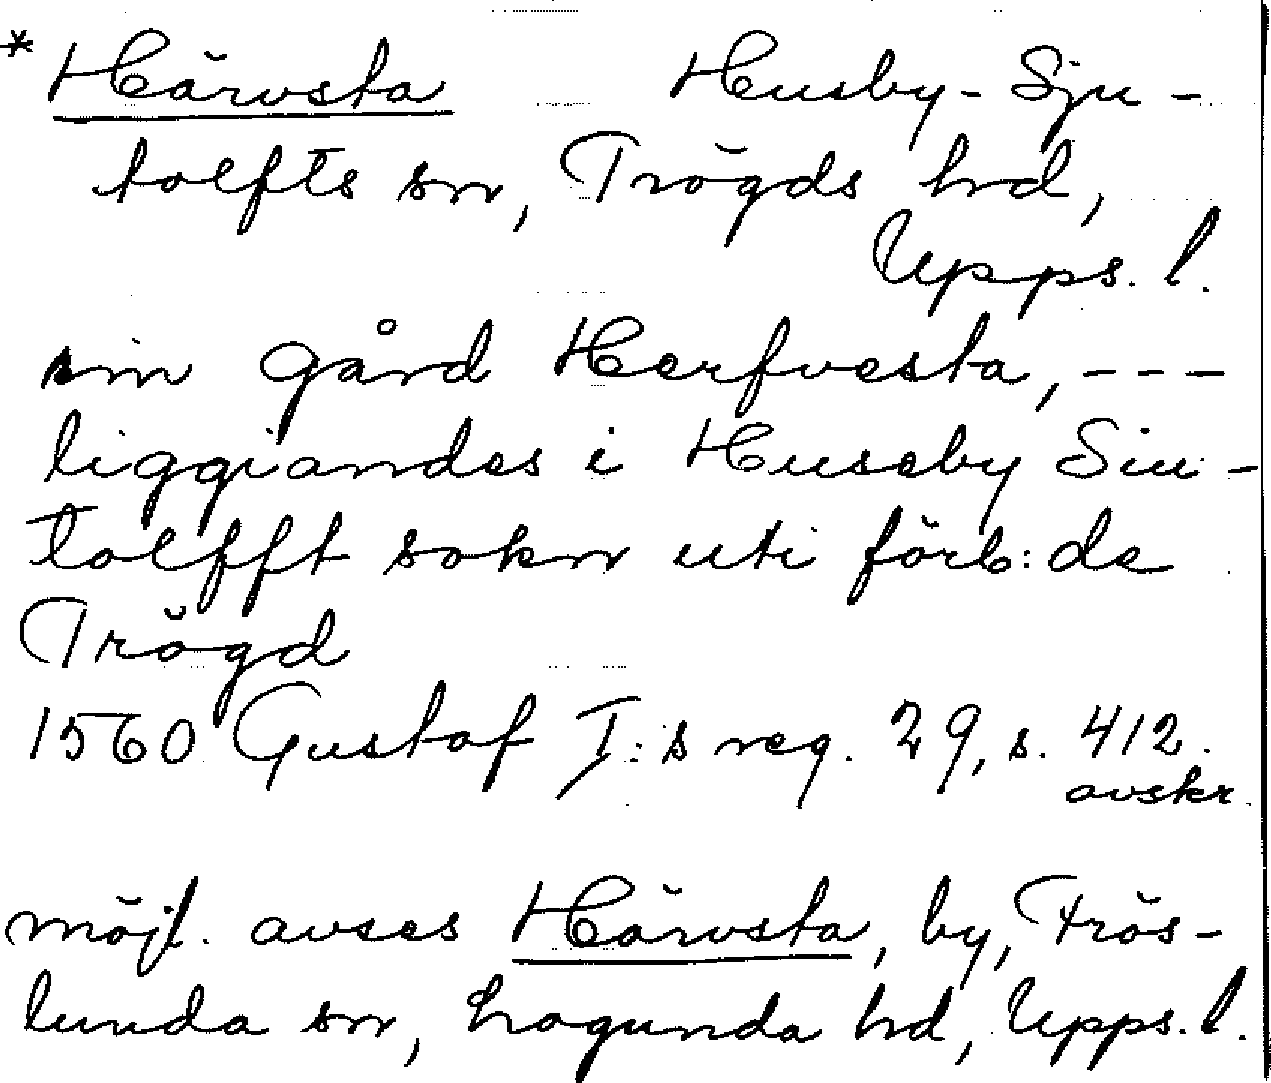 * Härvsta Husby-Sju-
tolfts sn, Trögds hd,
Upps. l.
sin gård Herfvesta, ---
liggiandes i Huseby Siu-
tolfft sokn uti förb:de
Trögd
1560 Gustaf I:s reg. 29, s. 412.
avskr.
möjl. avses Härvsta, by, Frös-
lunda sn, Lagunda hd, Upps. l.